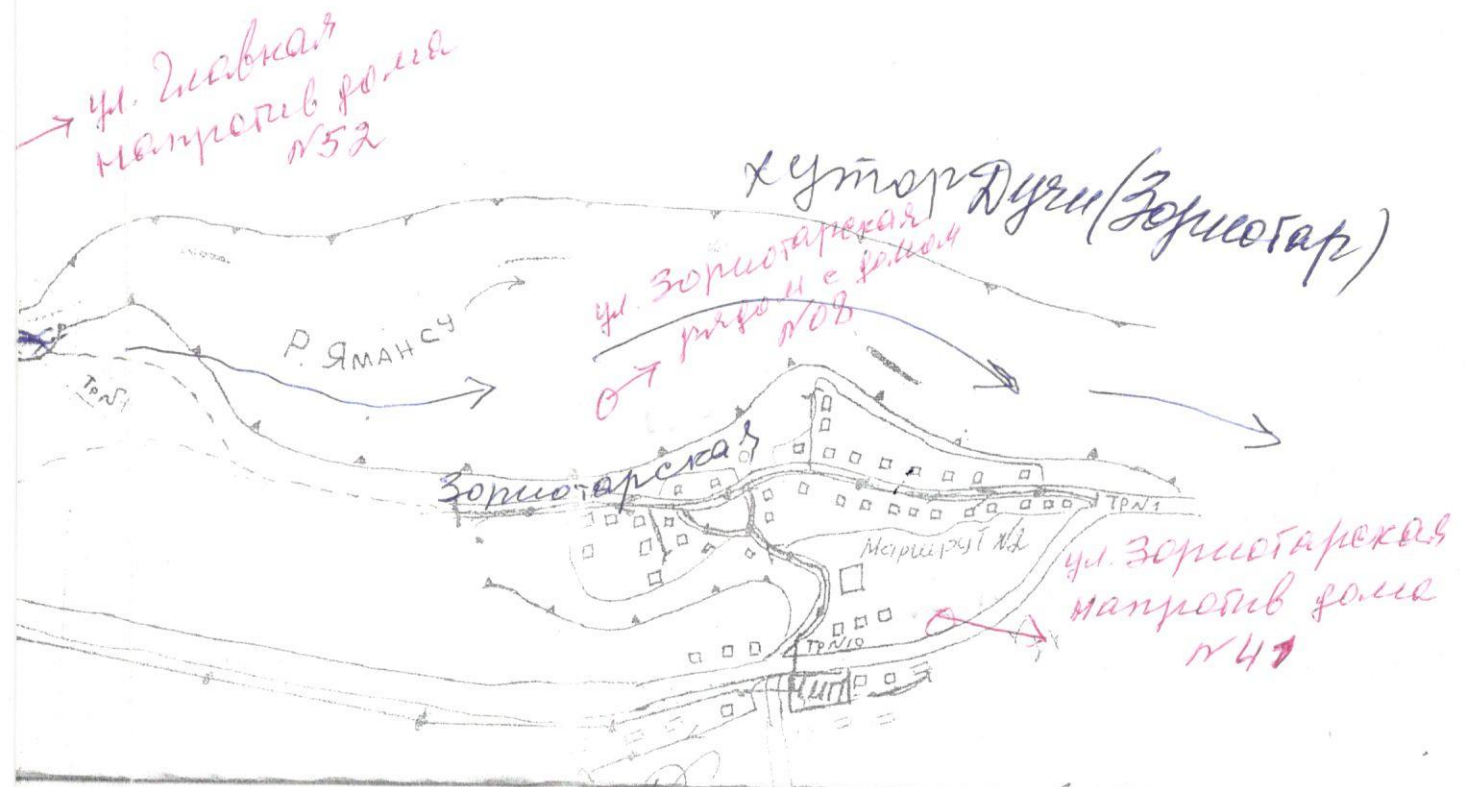 ул. Главная
напротив дома
№52
хутор Дучи (Зориотар)
ул. Зориотарская
рядом с домом
№08
Р. ЯМАНСУ
Зориотарская
ТР№1
Маршрут №2
ул. Зориотарская
напротив дома
№41
ТР№10